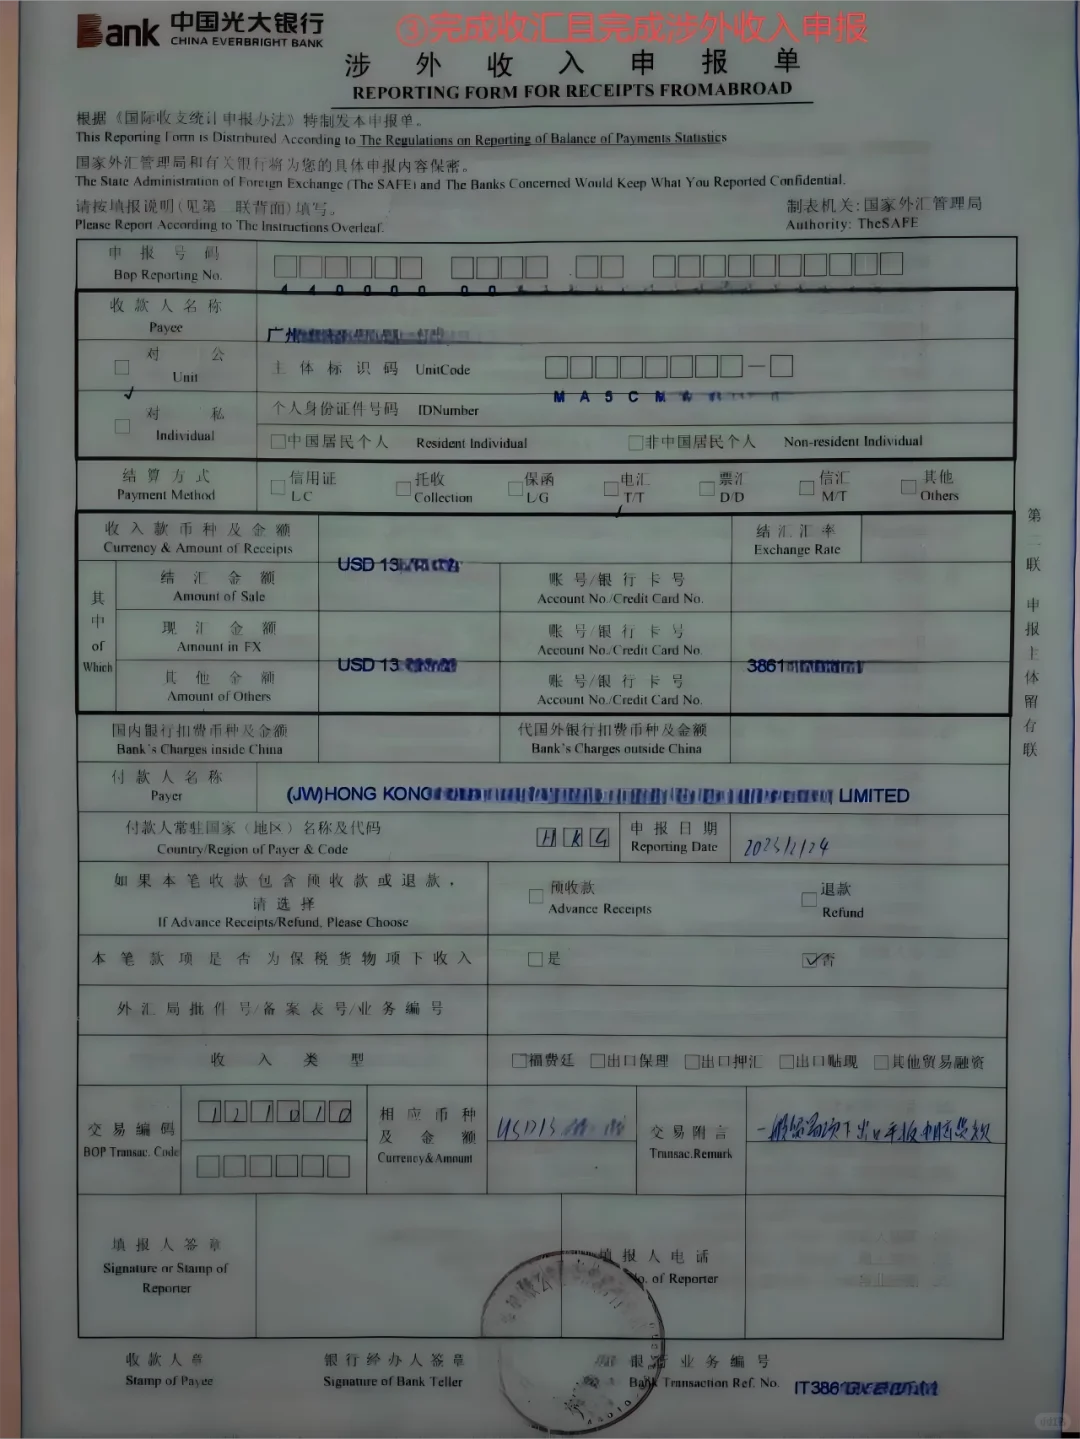 Bank 中国光大银行
CHINA EVERBRIGHT BANK
③完成收汇且完成涉外收入申报
涉外收入申报单
REPORTING FORM FOR RECEIPTS FROMABROAD
根据《国际收支统计申报办法》特制发本申报单。
This Reporting Form is Distributed According to The Regulations on Reporting of Balance of Payments Statistics
国家外汇管理局和有关银行将为您的具体申报内容保密。
The State Administration of Foreign Exchange (The SAFE) and The Banks Concerned Would Keep What You Reported Confidential.
请按填报说明(见第二联背面)填写。
制表机关:国家外汇管理局
Please Report According to The Instructions Overleaf.
Authority: TheSAFE
申报号码
Bop Reporting No.
440000 00
收款人名称
Payee
广州
对公
Unit
主体标识码 UnitCode
MA5CM
对私
Individual
个人身份证件号码 IDNumber
中国居民个人 Resident Individual
非中国居民个人 Non-resident Individual
结算方式
Payment Method
信用证
L/C
托收
Collection
保函
L/G
电汇
T/T
票汇
D/D
信汇
M/T
其他
Others
收入款币种及金额
Currency & Amount of Receipts
USD 13
结汇汇率
Exchange Rate
其中
of
Which
结汇金额
Amount of Sale
账号/银行卡号
Account No./Credit Card No.
现汇金额
Amount in FX
USD 13
账号/银行卡号
Account No./Credit Card No.
3861
其他金额
Amount of Others
账号/银行卡号
Account No./Credit Card No.
国内银行扣费币种及金额
Bank's Charges inside China
代国外银行扣费币种及金额
Bank's Charges outside China
付款人名称
Payer
(JW)HONG KONG LIMITED
付款人常驻国家(地区)名称及代码
Country/Region of Payer & Code
HKG
申报日期
Reporting Date
如果本笔收款包含预收款或退款,
请选择
If Advance Receipts/Refund, Please Choose
预收款
Advance Receipts
退款
Refund
本笔款项是否为保税货物项下收入
是
否
外汇局批件号/备案表号/业务编号
收入类型
福费廷
出口保理
出口押汇
出口贴现
其他贸易融资
交易编码
BOP Transac. Code
121010
相应币种
及金额
Currency&Amount
USD13
交易附言
Transac.Remark
填报人签章
Signature or Stamp of
Reporter
填报人电话
No. of Reporter
收款人章
Stamp of Payee
银行经办人签章
Signature of Bank Teller
银行业务编号
Bank Transaction Ref. No.
IT386
第二联 申报主体留存联